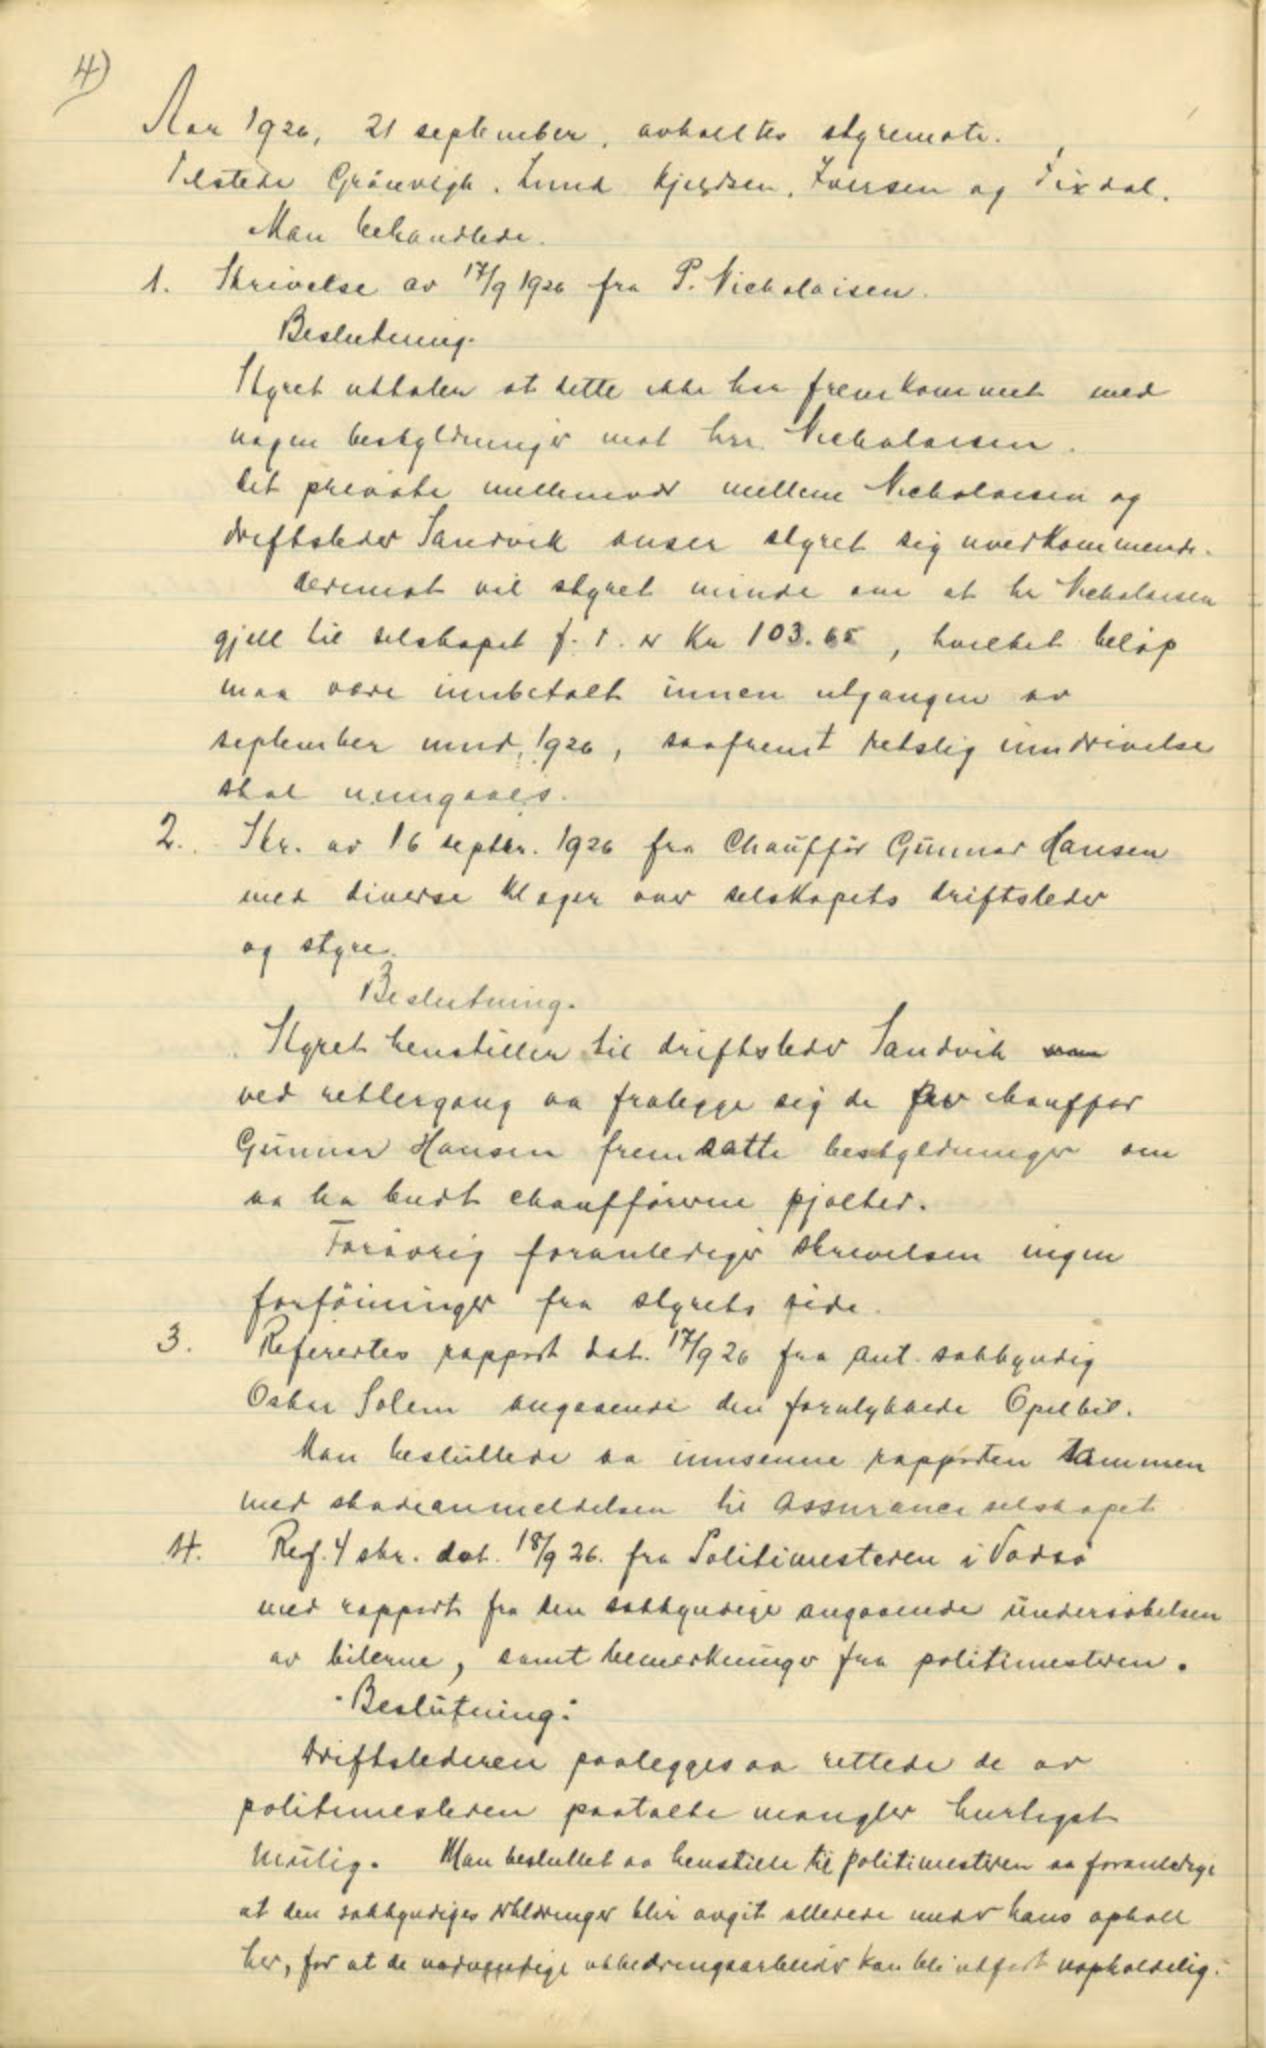 4)
Aar 1926, 21 september, avholltes styremøte.
Tilstede Grönvigh. Lund Kjeldsen, Iversen og Fixdal.
Man behandlede.
1. Skrivelse av 17/9 1926 fra P. Nicholaisen.
Beslutning.
Styret uttaler at dette ikke har fremkommet med
nogen beskyldninger mot hr. Nicholaisen.
Det private mellemvær mellem Nicholaisen og
driftsleder Sandvik anser styret sig uvedkommende.
Derimot vil styret minde om at hr Nicholaisen
gjell til selskapet f. t. er Kr 103.65, hvilket beløp
maa være innbetalt innen utgangen av
september mnd. 1926, saafremt retslig inndrivelse
skal unngaaes.
2. Skr. av 16 septbr. 1926 fra Chauffør Gunnar Hansen
med diverse klager over selskapets driftsleder
og styre.
Beslutning.
Styret henstiller til driftsleder Sandvik
ved rettergang aa fralegge sig de av chauffør
Gunnar Hansen fremsatte beskyldninger om
aa ha budt chaufførerne pjolter.
Forøvrig foranlediger skrivelsen ingen
forföininger fra styrets side.
3. Refirertes rapport dat. 17/9 26 fra aut. sakkyndig
Oskar Solem angaaende den forulykkede Opelbil.
Man besluttede aa innsenne rapporten sammen
med skadeanmeldelsen til Assuranceselskapet
4. Ref. 4 skr. dat. 18/9 26. fra Politimesteren i Vadsø
med rapport fra den sakkyndige angaaende undersökelsen
av bilerne, samt bemerkninger fra politimesteren.
Beslutning:
Driftslederen paalegges aa rettede de av
politimesteren paatalte mangler hurtigst
mulig. Man besluttet aa henstille til politimesteren aa foranledige
at den sakkyndiges erklæringer blir avgit allerede under hans ophold
her, for at de nødvendige utbedringsarbeider kan bli utført uopholdelig.